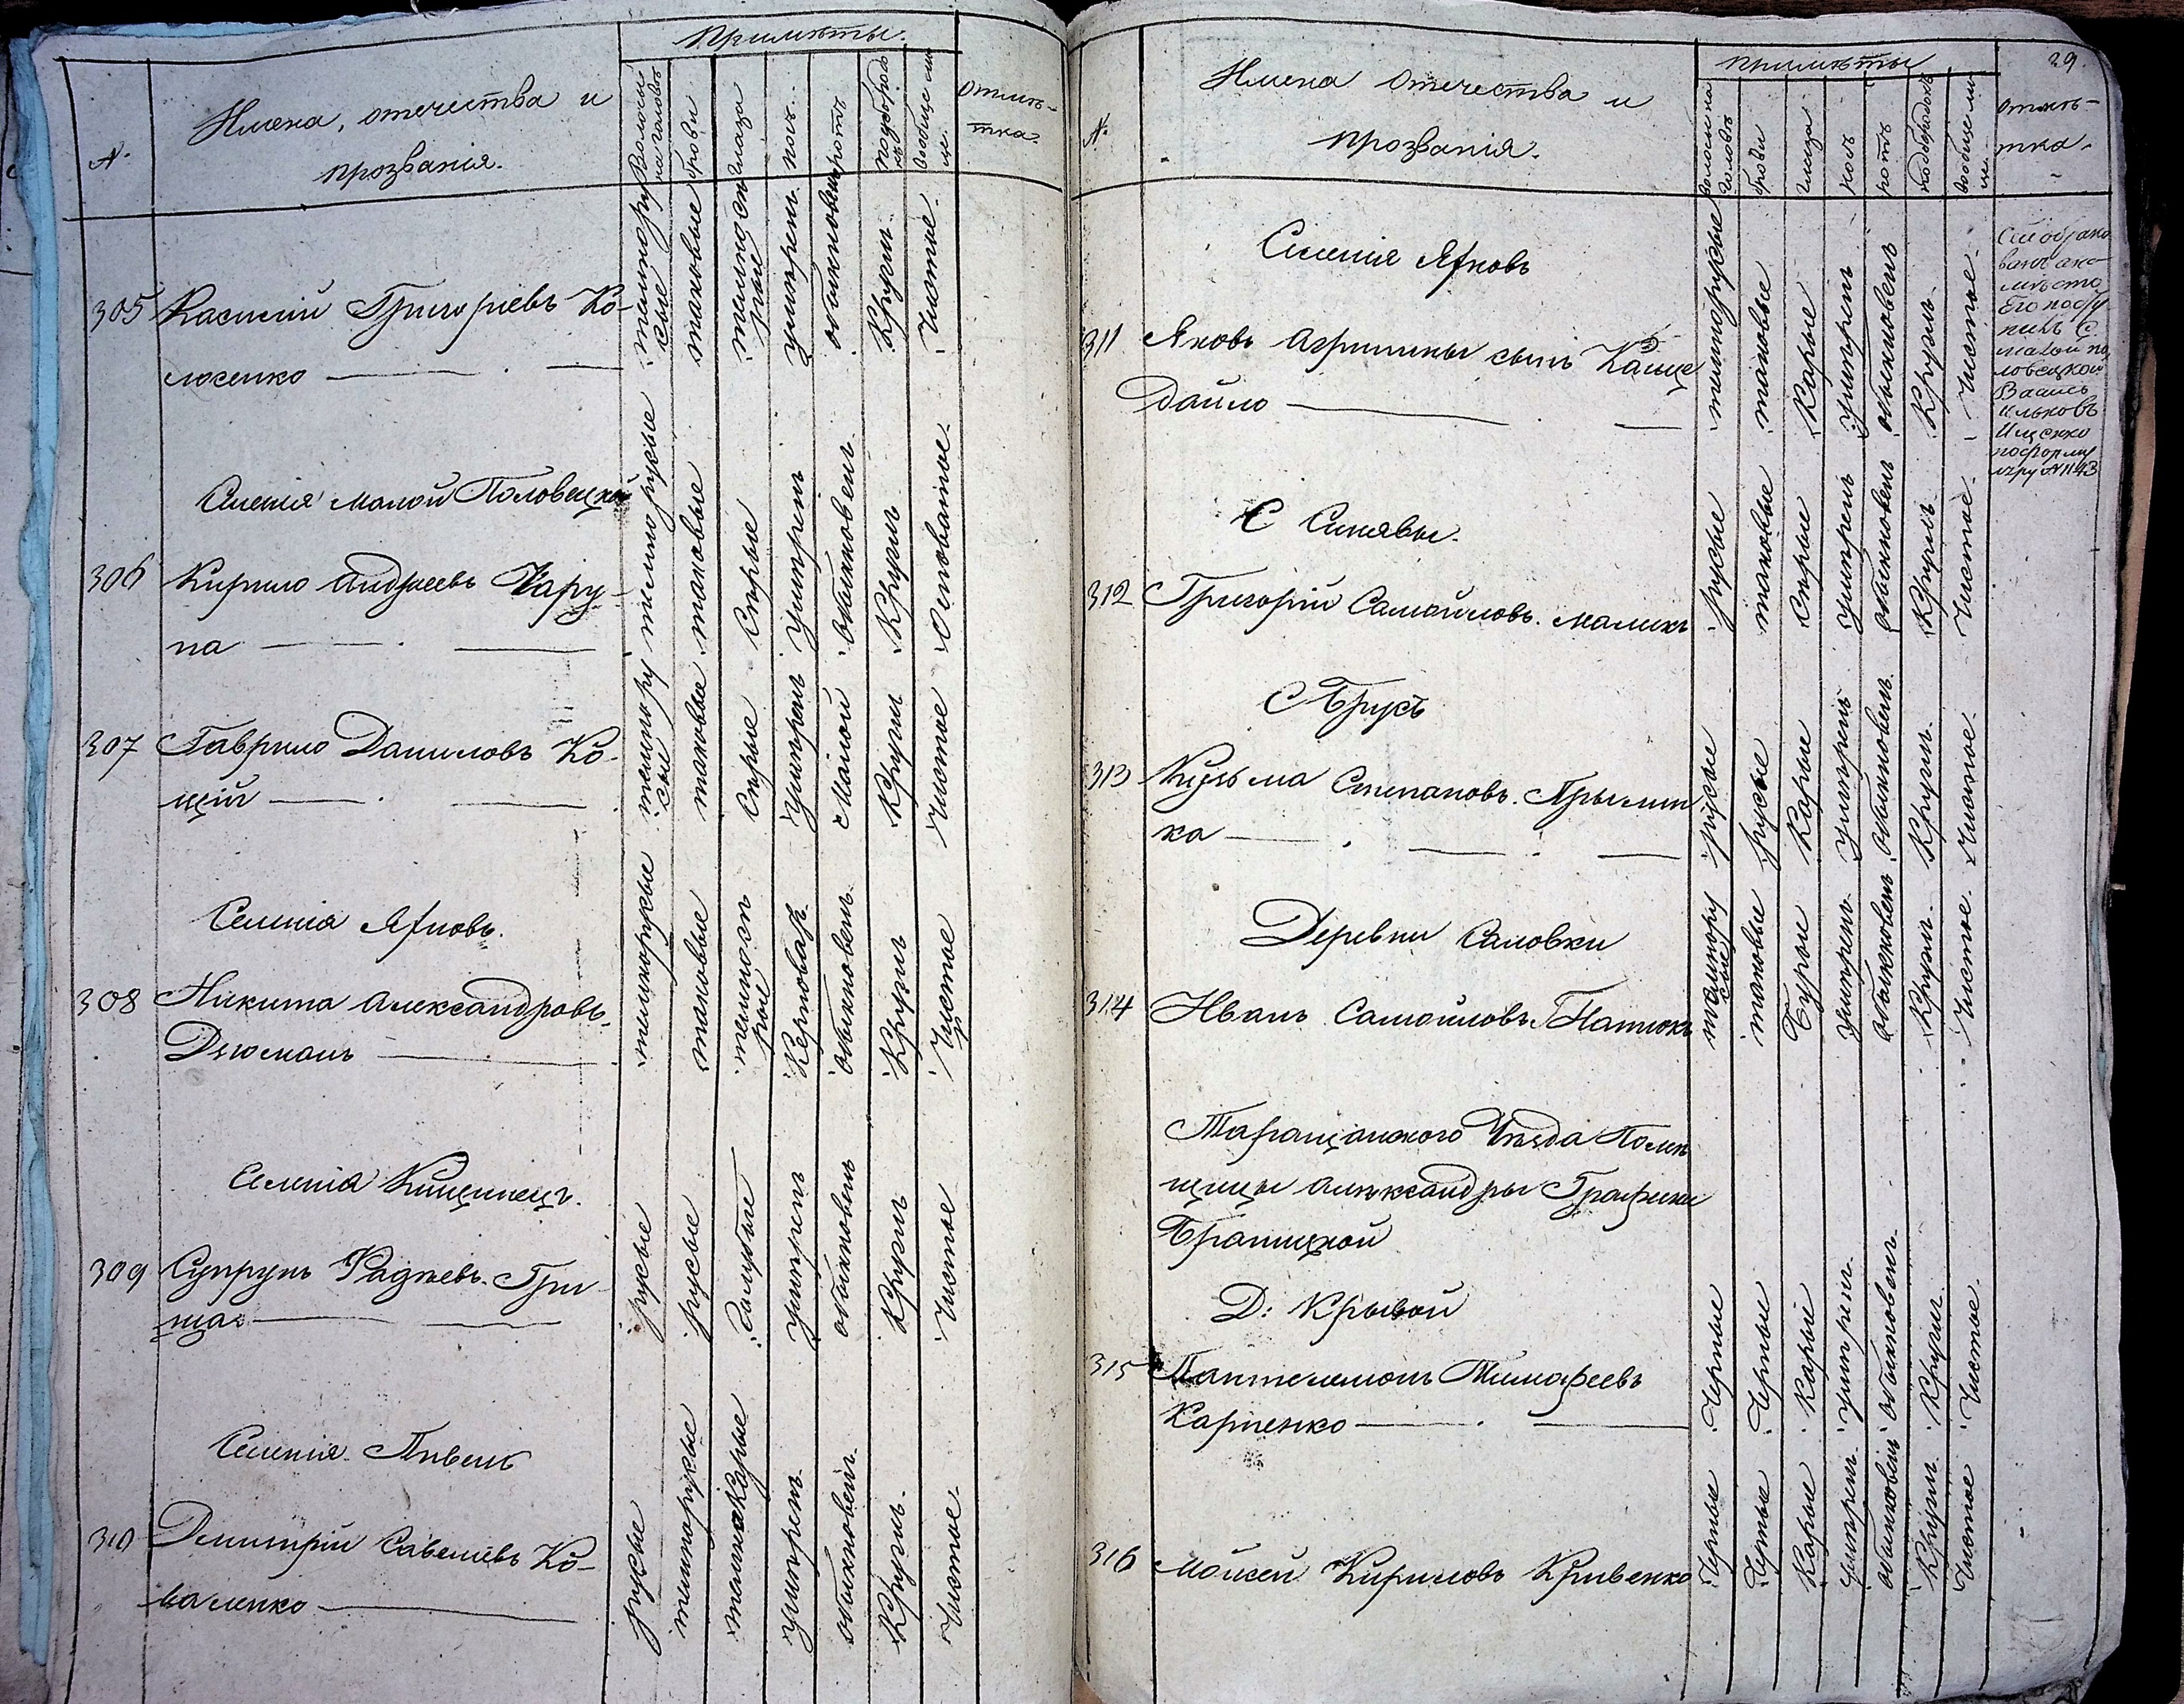 Примѣты.
№
Имена, отечества и
прозванія.
Волосы
на головѣ
брови
глаза
носъ
ротъ
подбородо
къ
вообще ли
це.
Отмѣт-
тка.
305 Касіянъ Григоріевъ Ко-
люсенко
темнору
сые
таковые
темносѣ
рые
умѣрен.
обыкновен.
Кругл.
Чистое.
Селенія малой Половецкой
306 Кирило Андреевъ Чару-
па
темнорусые
таковые
Сѣрые
умѣрен.
обыкновен.
Кругл.
Осповатое.
307 Гаврило Даниловъ Ко-
щій
темнору
сые
таковые
Сѣрые
умѣрен.
Малой
Кругл.
Чистое
Селенія Яхновъ.
308 Никита Александровъ
Дзюманъ
темнорусые
таковые
темносѣ
рые
обыкновен.
Кругл.
Чистое
Селенія Кищинецъ.
309 Супрунъ Радіевъ Гри-
ща
русые
русые
голубые
умѣрен.
обыкновен.
Кругл.
Чистое
Селенія Пивень
310 Дмитрій Савеліевъ Ко-
валенко
русые
темнорусые
темноКарые
умѣрен.
обыкновен.
Кругл.
Чистое.
29.
Примѣты
№
Имена Отечества и
прозванія.
волосы на
головѣ
брови
глаза
носъ
ротъ
подбородокъ
вообще ли
це.
Отмѣт-
тка.
Селенія Яхновъ
311 Яковъ Агрипины сынъ
Дайло
темнорусые
таковые
Карые
умѣрен.
обыкновен.
Кругл.
Чистое.
Сей обрако
ванъ а на
мѣсто
Его посту
пилъ С.
малой по
ловецкой
Василь
Ильковъ
Ищенко
по формул
яру №1143
С Синявы.
312 Григорій Самойловъ. Маликъ
русые
таковые
Сѣрые
умѣрен.
обыкновен.
Кругл.
Чистое.
С Трусъ
313 Кузьма Степановъ.
ка
русые
русые
Карые
умѣрен.
обыкновен.
Кругл.
Чистое.
Деревни Саловки
314 Иванъ Самойловъ
темнору
сые
таковые
Бурые
умѣрен.
обыкновен.
Кругл.
Чистое.
Таращанского Уѣзда Помѣ
щицы Александры Графини
Браницкой
Д: Крывой
315 Пантелемонъ Тимофеевъ
Карпенко
Черные
Черные
Карые
умѣрен.
обыкновен.
Кругл.
Чистое.
316 Мойсей Кириловъ Кривенко
Черные
Черные
Карые
умѣрен.
обыкновен.
Кругл.
Чистое